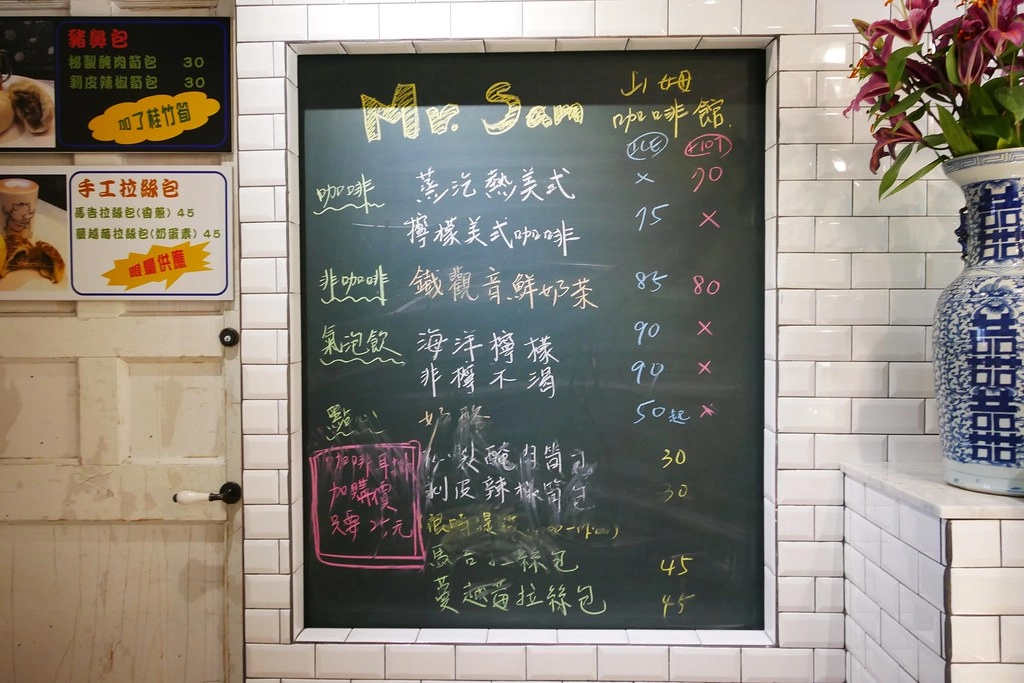 豬鼻包
秘製醃肉筍包 30
剝皮辣椒筍包 30
加了桂竹筍
手工拉絲包
馬告拉絲包(香蔥) 45
蔓越莓拉絲包(奶蛋素) 45
限量供應
Mr. Sam
山姆
咖啡館
ICE HOT
咖啡 蒸汽熱美式 × 70
檸檬美式咖啡 75 ×
非咖啡 鐵觀音鮮奶茶 85 80
氣泡飲 海洋檸檬 90 ×
非檸不渴 90 ×
點心 奶酪 50起 ×
醃肉筍 30
剝皮辣椒筍包 30
限時
馬告拉絲包 45
蔓越莓拉絲包 45
咖啡
加購價
只要25元